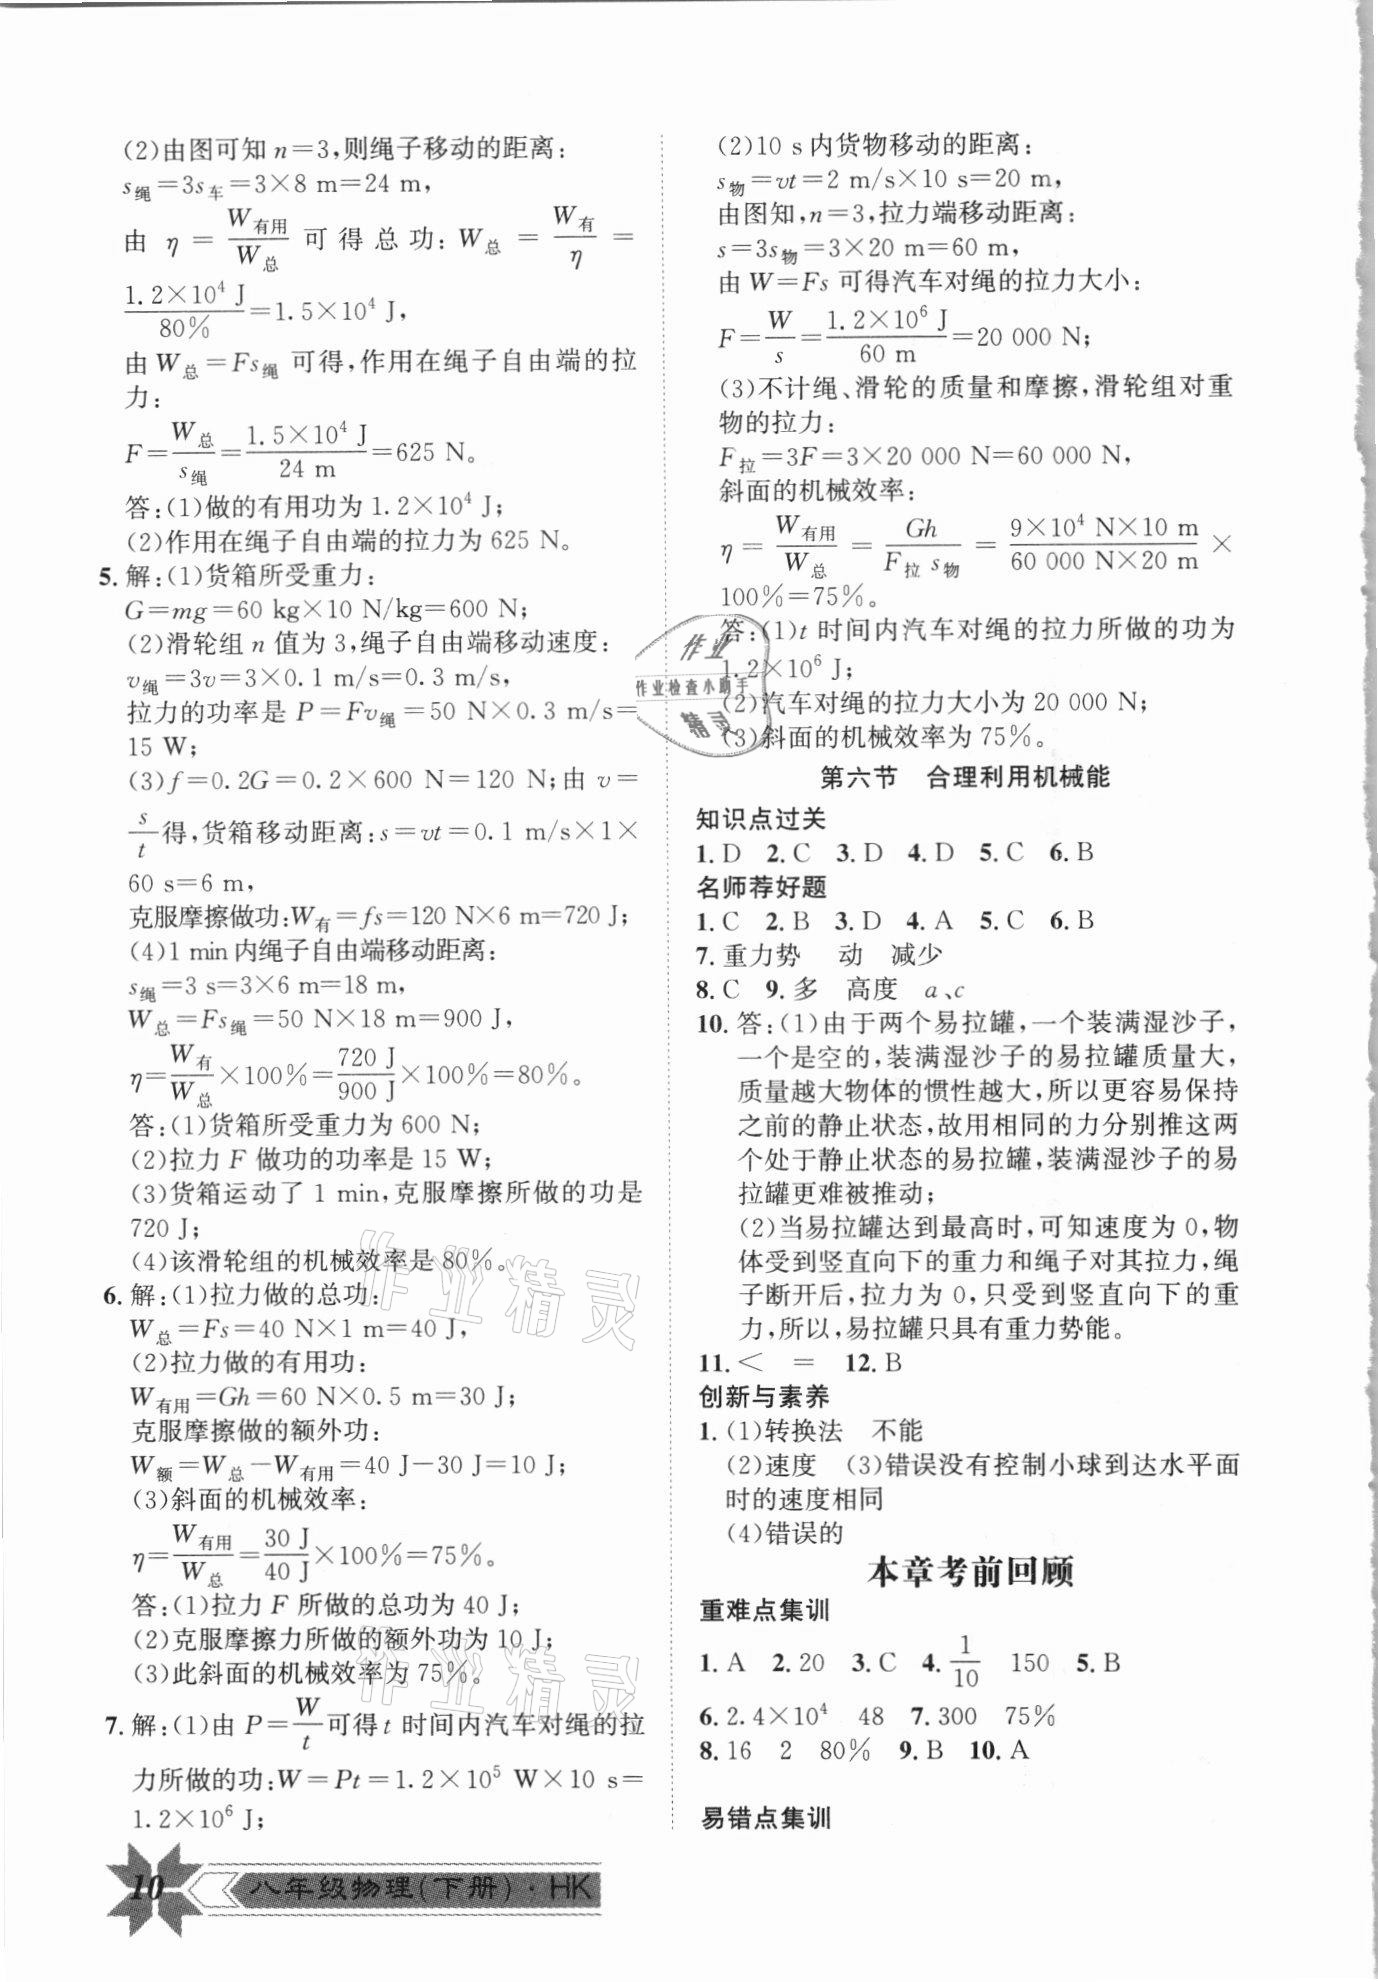 (2)由图可知 n=3,则绳子移动的距离:
s绳=3s车=3×8 m=24 m,
由 η = W有用/W总 可得总功: W总 = W有/η =
1.2×10⁴ J/80%=1.5×10⁴ J,
由 W总=Fs绳 可得,作用在绳子自由端的拉
力:
F=W总/s绳=1.5×10⁴ J/24 m=625 N。
答:(1)做的有用功为 1.2×10⁴ J;
(2)作用在绳子自由端的拉力为 625 N。
5. 解:(1)货箱所受重力:
G=mg=60 kg×10 N/kg=600 N;
(2)滑轮组 n 值为 3,绳子自由端移动速度:
v绳=3v=3×0.1 m/s=0.3 m/s,
拉力的功率是 P=Fv绳=50 N×0.3 m/s=
15 W;
(3)f=0.2G=0.2×600 N=120 N;由 v=
s/t得,货箱移动距离:s=vt=0.1 m/s×1×
60 s=6 m,
克服摩擦做功:W有=fs=120 N×6 m=720 J;
(4)1 min内绳子自由端移动距离:
s绳=3 s=3×6 m=18 m,
W总=Fs绳=50 N×18 m=900 J,
η=W有/W总×100%=720 J/900 J×100%=80%。
答:(1)货箱所受重力为 600 N;
(2)拉力 F 做功的功率是 15 W;
(3)货箱运动了 1 min,克服摩擦所做的功是
720 J;
(4)该滑轮组的机械效率是 80%。
6. 解:(1)拉力做的总功:
W总=Fs=40 N×1 m=40 J,
(2)拉力做的有用功:
W有用=Gh=60 N×0.5 m=30 J;
克服摩擦做的额外功:
W额=W总-W有用=40 J-30 J=10 J;
(3)斜面的机械效率:
η=W有用/W总=30 J/40 J×100%=75%。
答:(1)拉力 F 所做的总功为 40 J;
(2)克服摩擦力所做的额外功为 10 J;
(3)此斜面的机械效率为 75%。
7. 解:(1)由 P=W/t可得 t 时间内汽车对绳的拉
力所做的功:W=Pt=1.2×10⁵ W×10 s=
1.2×10⁶ J;
10 八年级物理(下册)·HK
(2)10 s内货物移动的距离:
s物=vt=2 m/s×10 s=20 m,
由图知,n=3,拉力端移动距离:
s=3s物=3×20 m=60 m,
由 W=Fs 可得汽车对绳的拉力大小:
F=W/s=1.2×10⁶ J/60 m=20 000 N;
(3)不计绳、滑轮的质量和摩擦,滑轮组对重
物的拉力:
F拉=3F=3×20 000 N=60 000 N,
斜面的机械效率:
η = W有用/W总 = Gh/F拉 s物 = 9×10⁴ N×10 m/60 000 N×20 m ×
100%=75%。
答:(1)t 时间内汽车对绳的拉力所做的功为
1.2×10⁶ J;
(2)汽车对绳的拉力大小为 20 000 N;
(3)斜面的机械效率为 75%。
作业
作业检查小助手
精灵
第六节 合理利用机械能
知识点过关
1. D 2. C 3. D 4. D 5. C 6. B
名师荐好题
1. C 2. B 3. D 4. A 5. C 6. B
7. 重力势 动 减少
8. C 9. 多 高度 a、c
10. 答:(1)由于两个易拉罐,一个装满湿沙子,
一个是空的,装满湿沙子的易拉罐质量大,
质量越大物体的惯性越大,所以更容易保持
之前的静止状态,故用相同的力分别推这两
个处于静止状态的易拉罐,装满湿沙子的易
拉罐更难被推动;
(2)当易拉罐达到最高时,可知速度为 0,物
体受到竖直向下的重力和绳子对其拉力,绳
子断开后,拉力为 0,只受到竖直向下的重
力,所以,易拉罐只具有重力势能。
11. < = 12. B
创新与素养
1. (1)转换法 不能
(2)速度 (3)错误没有控制小球到达水平面
时的速度相同
(4)错误的
本章考前回顾
重难点集训
1. A 2. 20 3. C 4. 1/10 150 5. B
6. 2.4×10⁴ 48 7. 300 75%
8. 16 2 80% 9. B 10. A
易错点集训
作业精灵
作业精灵